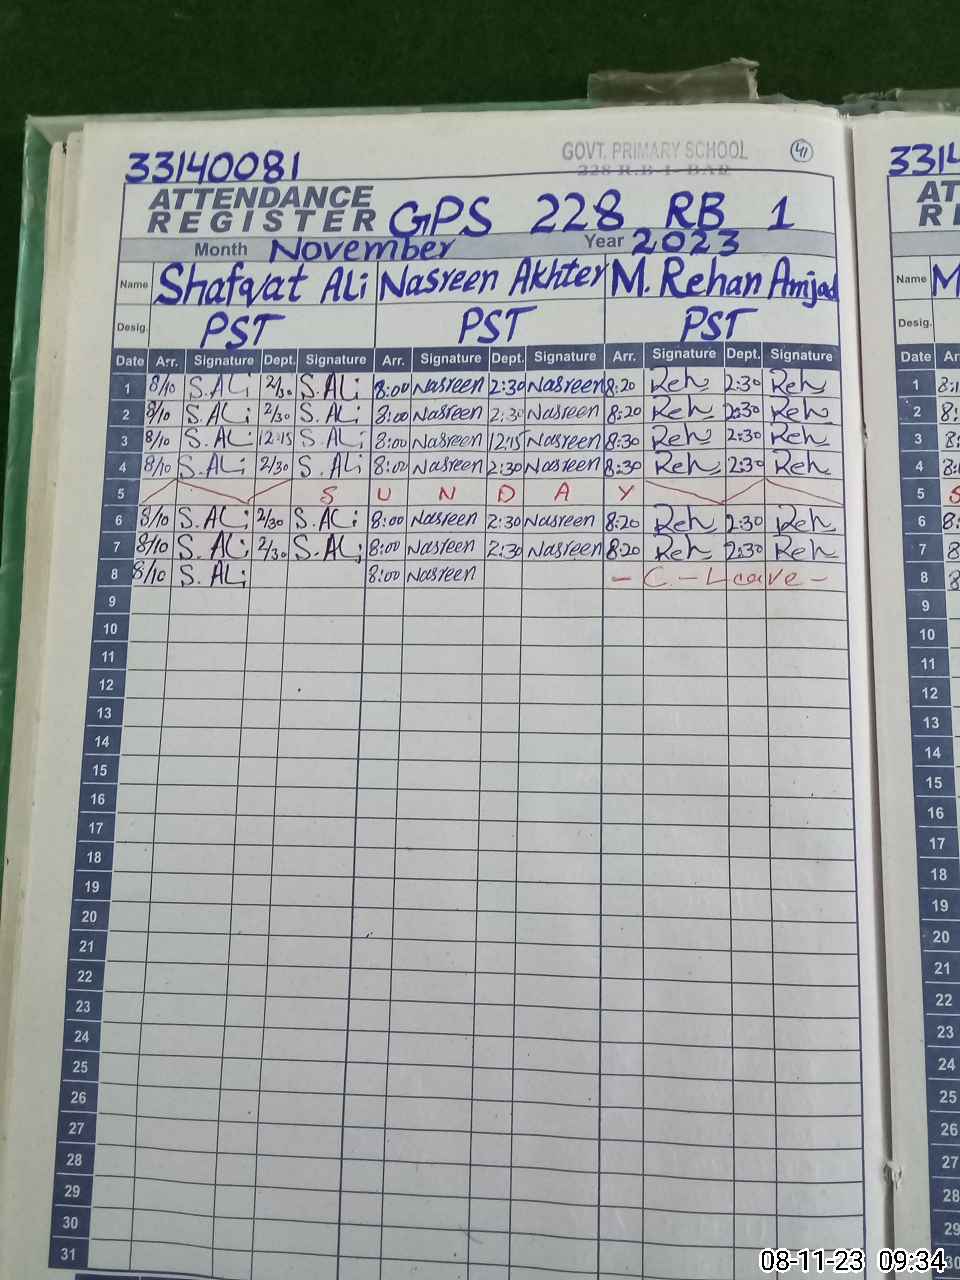 33140081 GOVT. PRIMARY SCHOOL 41 3314
228 R.B-1- BAR
ATTENDANCE AT
REGISTER GPS 228 RB 1 RE
Month November Year 2023
Name Shafqat Ali Nasreen Akhter M. Rehan Amjad Name M
Desig. PST PST PST Desig.
Date Arr. Signature Dept. Signature Arr. Signature Dept. Signature Arr. Signature Dept. Signature Date Ar
1 8/10 S.ALi 2/30 S.ALi 8:00 Nasreen 2:30 Nasreen 8:20 Reh 2:30 Reh 1
2 8/10 S.ALi 2/30 S.ALi 8:00 Nasreen 2:30 Nasreen 8:20 Reh 2:30 Reh 2
3 8/10 S.ALi 12:15 S.ALi 8:00 Nasreen 12:15 Nasreen 8:30 Reh 2:30 Reh 3
4 8/10 S.ALi 2/30 S.ALi 8:00 Nasreen 2:30 Nasreen 8:30 Reh 2:30 Reh 4
5 S U N D A Y 5 S
6 8/10 S.ALi 2/30 S.ALi 8:00 Nasreen 2:30 Nasreen 8:20 Reh 2:30 Reh 6
7 8/10 S.ALi 2/30 S.ALi 8:00 Nasreen 2:30 Nasreen 8:20 Reh 2:30 Reh 7
8 8/10 S.ALi 8:00 Nasreen - C - Leave - 8
9 9
10 10
11 11
12 12
13 13
14 14
15 15
16 16
17 17
18 18
19 19
20 20
21 21
22 22
23 23
24 24
25 25
26 26
27 27
28 28
29 29
30 30
31
08-11-23 09:34